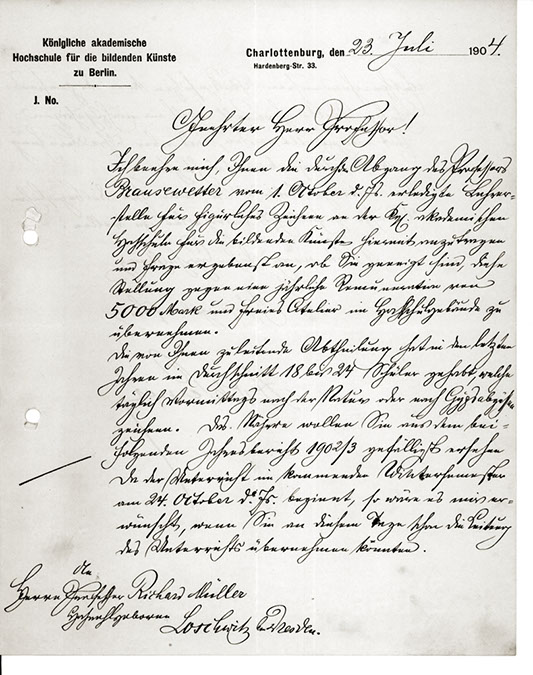 Königliche akademische
Hochschule für die bildenden Künste
zu Berlin.
J. No.
Charlottenburg, den 23. Juli 1904.
Hardenberg-Str. 33.
Geehrter Herr Professor!
Ich beehre mich, Ihnen die durch Abgang des Professors
Brausewetter vom 1. Oktober d. Js. erledigte Lehrer-
stelle für figürliches Zeichnen an der Kgl. akademischen
Hochschule für die bildenden Künste hiermit anzutragen
und frage ergebenst an, ob Sie geneigt sind, diese
Stellung gegen eine jährliche Remuneration von
5000 Mark und freies Atelier im Hochschulgebäude zu
übernehmen.
Die von Ihnen zu leitende Abtheilung hat in den letzten
Jahren im Durchschnitt 18 bis 24 Schüler gehabt, welche
täglich Vormittags nach der Natur oder nach Gypsabgüssen
zeichnen. Das Nähere wollen Sie aus dem bei-
folgenden Jahresbericht 1902/3 gefälligst ersehen.
Da der Unterricht im kommenden Wintersemester
am 24. October d. Js. beginnt, so wäre es mir er-
wünscht, wenn Sie an diesem Tage schon die Leitung
des Unterrichts übernehmen könnten.
An
Herrn Professor Richard Müller
Hochwohlgeboren
Loschwitz b. Dresden.